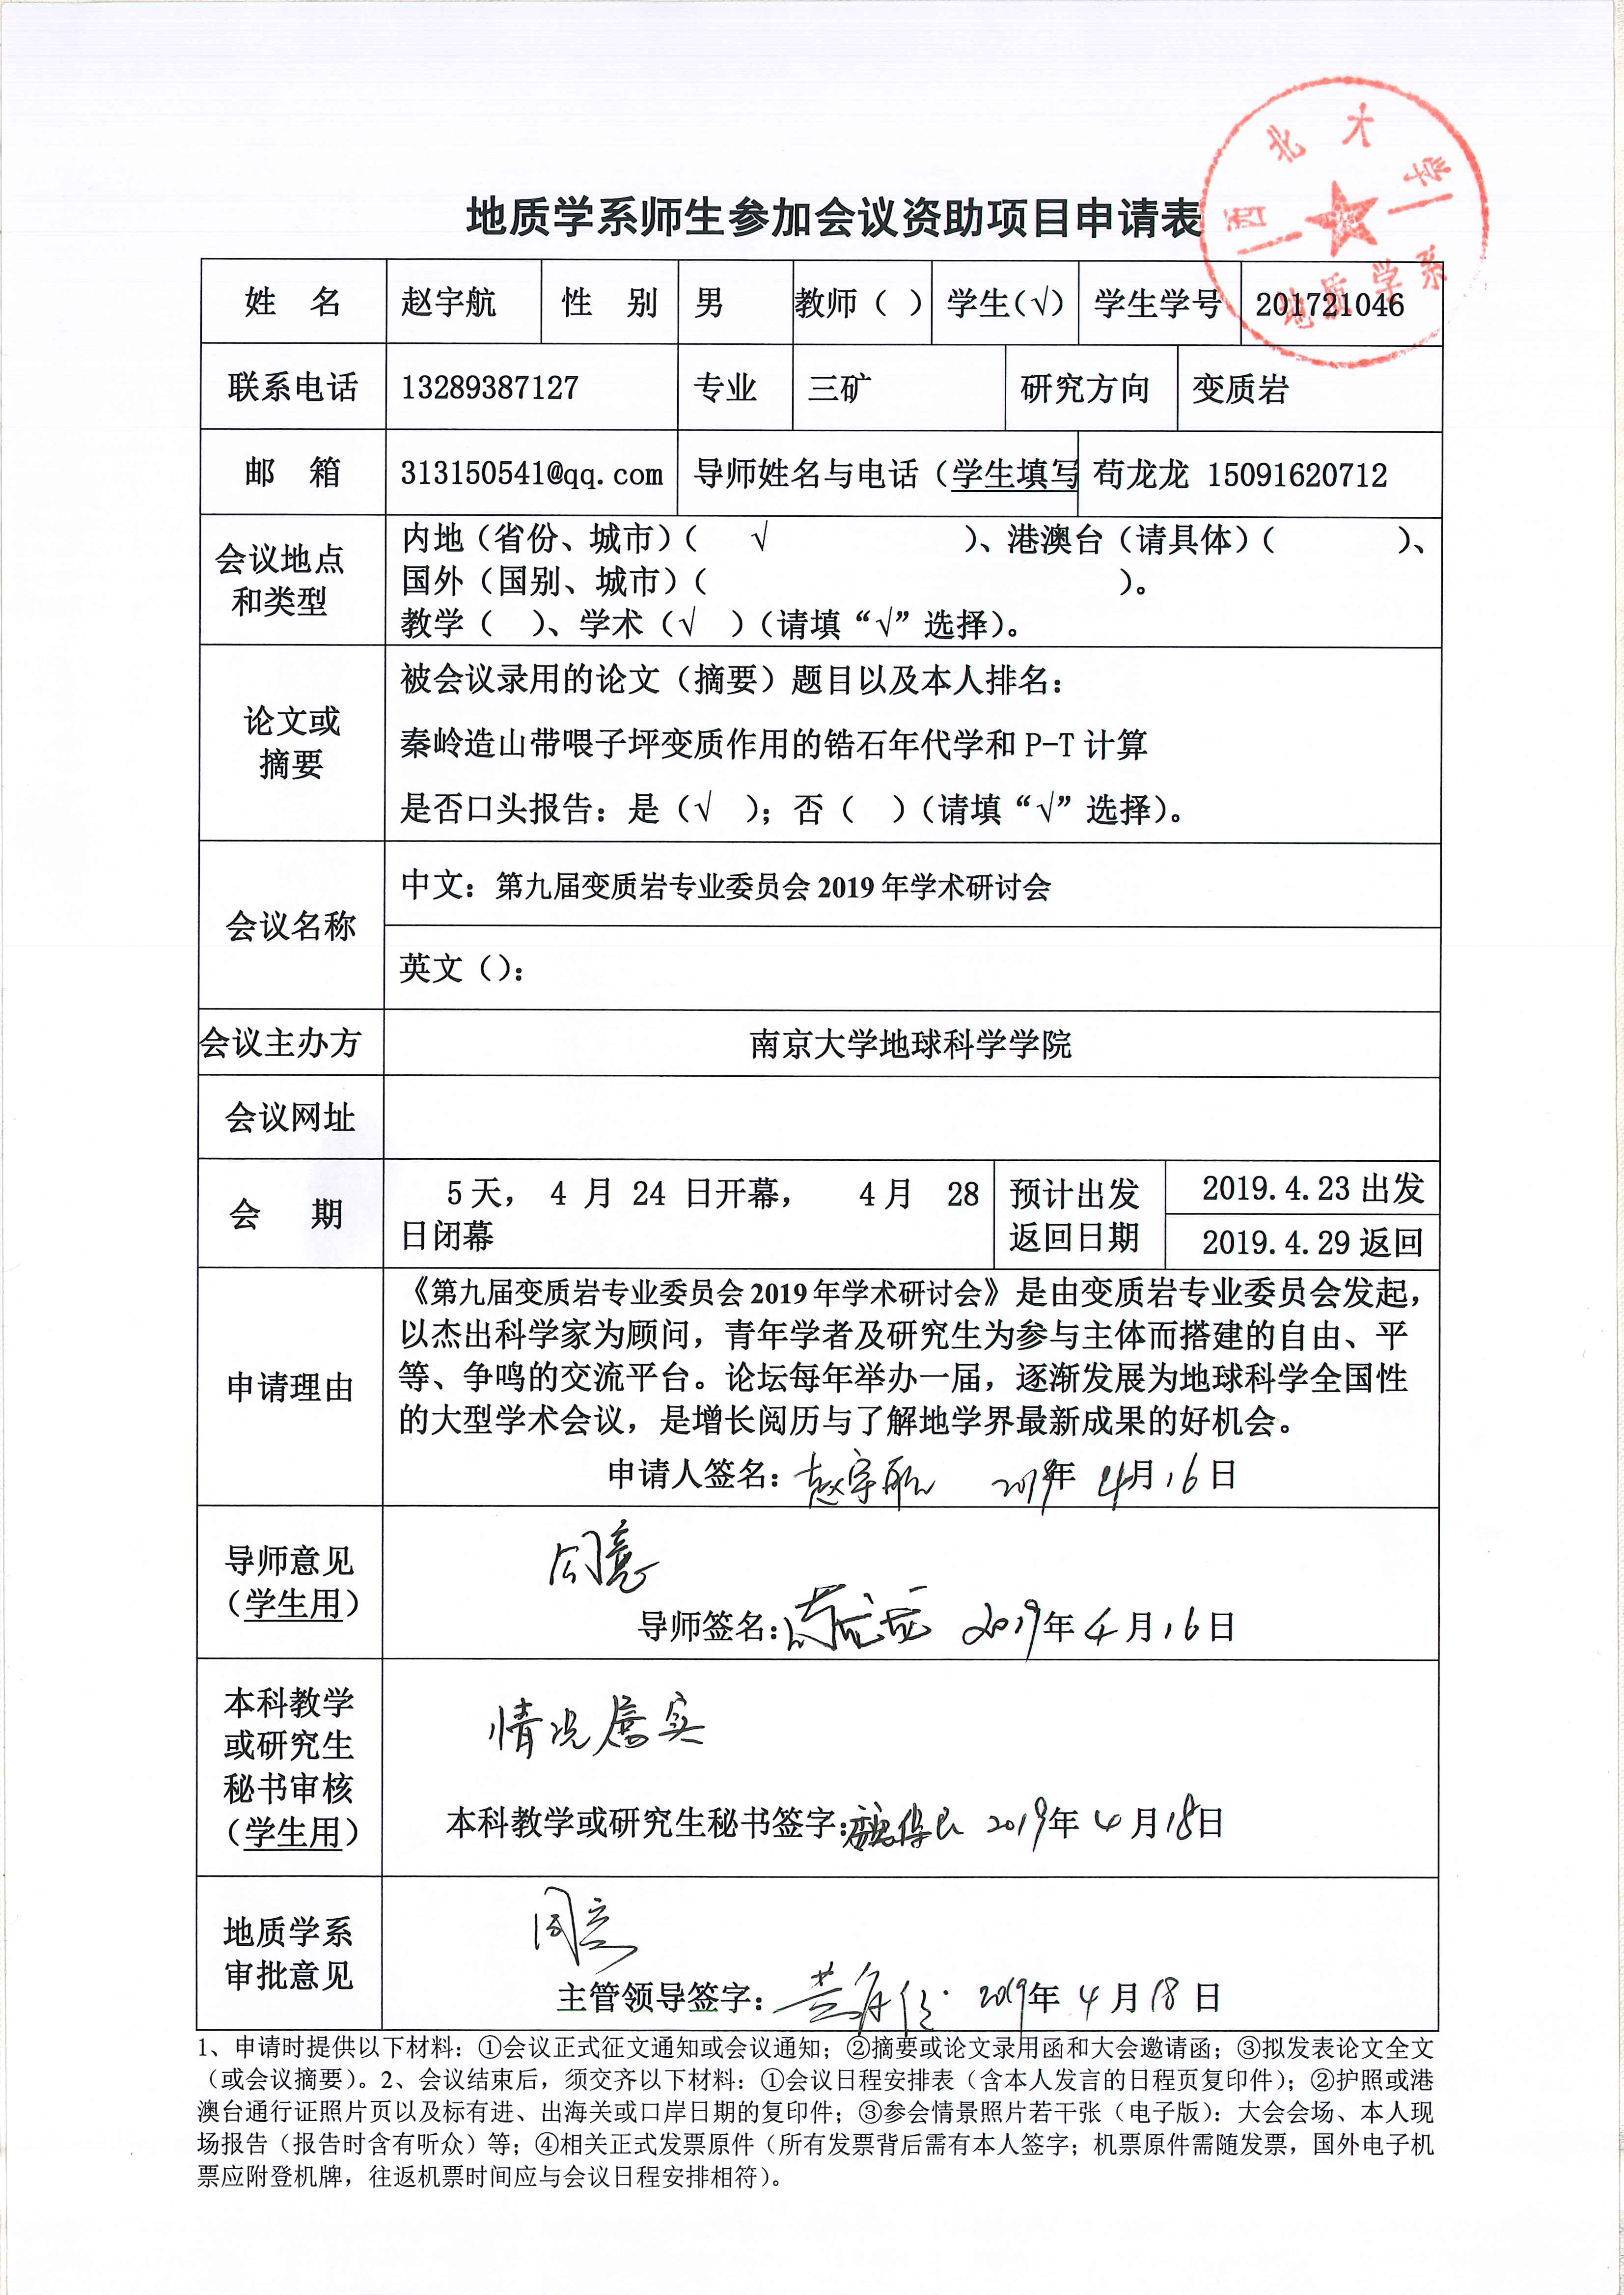 西北大学
地质学系
地质学系师生参加会议资助项目申请表
姓 名 赵宇航 性 别 男 教师（ ） 学生（√） 学生学号 201721046
联系电话 13289387127 专业 三矿 研究方向 变质岩
邮 箱 313150541@qq.com 导师姓名与电话（学生填写 苟龙龙 15091620712
会议地点
和类型
内地（省份、城市）（ √ ）、港澳台（请具体）（ ）、
国外（国别、城市）（ ）。
教学（ ）、学术（√ ）（请填“√”选择）。
论文或
摘要
被会议录用的论文（摘要）题目以及本人排名：
秦岭造山带喂子坪变质作用的锆石年代学和P-T计算
是否口头报告：是（√ ）；否（ ）（请填“√”选择）。
会议名称
中文：第九届变质岩专业委员会2019年学术研讨会
英文（）：
会议主办方 南京大学地球科学学院
会议网址
会 期
5天， 4 月 24 日开幕， 4月 28
日闭幕
预计出发
返回日期
2019.4.23出发
2019.4.29返回
申请理由
《第九届变质岩专业委员会2019年学术研讨会》是由变质岩专业委员会发起，
以杰出科学家为顾问，青年学者及研究生为参与主体而搭建的自由、平
等、争鸣的交流平台。论坛每年举办一届，逐渐发展为地球科学全国性
的大型学术会议，是增长阅历与了解地学界最新成果的好机会。
申请人签名：赵宇航 2019年 4月16日
导师意见
（学生用）
同意
导师签名：苟龙龙 2019年4月16日
本科教学
或研究生
秘书审核
（学生用）
情况属实
本科教学或研究生秘书签字： 2019年4月18日
地质学系
审批意见
同意
主管领导签字： 2019年4月18日
1、申请时提供以下材料：①会议正式征文通知或会议通知；②摘要或论文录用函和大会邀请函；③拟发表论文全文
（或会议摘要）。2、会议结束后，须交齐以下材料：①会议日程安排表（含本人发言的日程页复印件）；②护照或港
澳台通行证照片页以及标有进、出海关或口岸日期的复印件；③参会情景照片若干张（电子版）：大会会场、本人现
场报告（报告时含有听众）等；④相关正式发票原件（所有发票背后需有本人签字；机票原件需随发票，国外电子机
票应附登机牌，往返机票时间应与会议日程安排相符）。